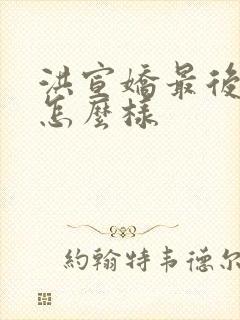 洪宣嬌最後
怎麼樣
約翰特韦德尔